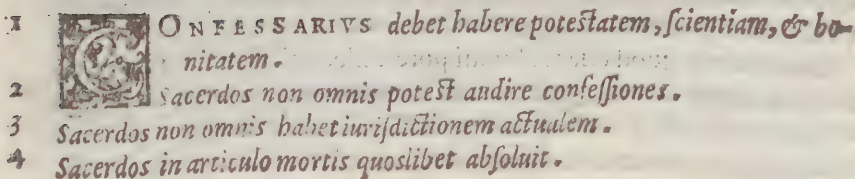 1 CONFESSARIVS debet habere poteſtatem, ſcientiam, & bo-
nitatem.
2 Sacerdos non omnis poteſt audire confeſſiones.
3 Sacerdos non omnis habet iuriſdictionem actualem.
4 Sacerdos in articulo mortis quoslibet abſoluit.